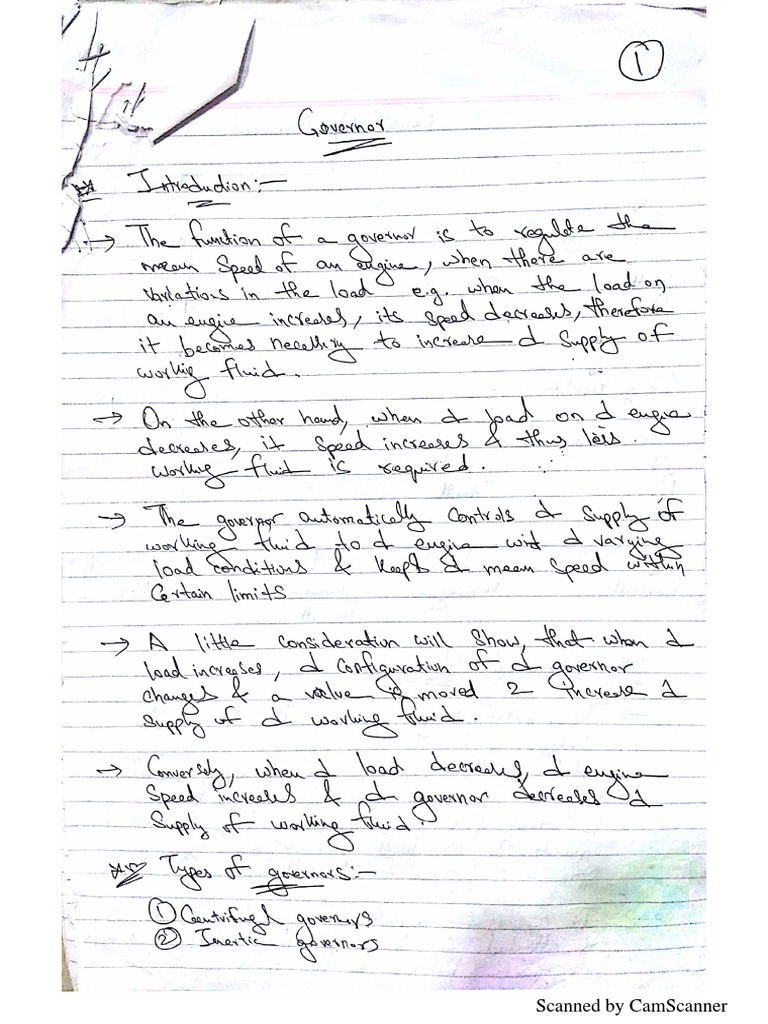 1
Governor
Introduction:-
→ The function of a governor is to regulate the
mean Speed of an engine, when there are
variations in the load e.g. when the load on
an engine increases, its speed decreases, therefore
it becomes necessary to increase d supply of
working fluid.
→ On the other hand, when d load on d engine
decreases, it speed increases & thus less
working fluid is required.
→ The governor automatically controls d supply of
working fluid to d engine with d varying
load conditions & keeps d mean speed within
Certain limits
→ A little consideration will show, that when d
load increases, d configuration of d governor
changes & a valve is moved 2 increase d
supply of d working fluid.
→ Conversely, when d load decreases, d engine
speed increases & d governor decreases d
supply of working fluid.
Types of governors:-
① Centrifugal governors
② Inertia governors
Scanned by CamScanner